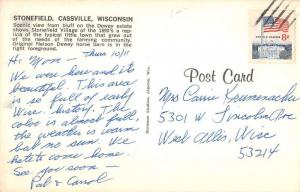 STONEFIELD, CASSVILLE, WISCONSIN
Scenic view from bluff on the Dewey estate
shows Stonefield Village of the 1890's a rep-
lica of the typical little town that grew out
of the needs of the farming community.
Original Nelson Dewey horse barn is in the
right foreground.
Thurs 10/11
Hi Mom -
We were here and it's
beautiful. This area
is so full of early
Wisc. history. The
color is almost full,
the weather is warm
but no sun. We
hate to come home.
See you soon -
Pat & Carrol
Post Card
Mrs Carrie
5301 W Lincoln Ave
West Allis, Wisc
53214
8c